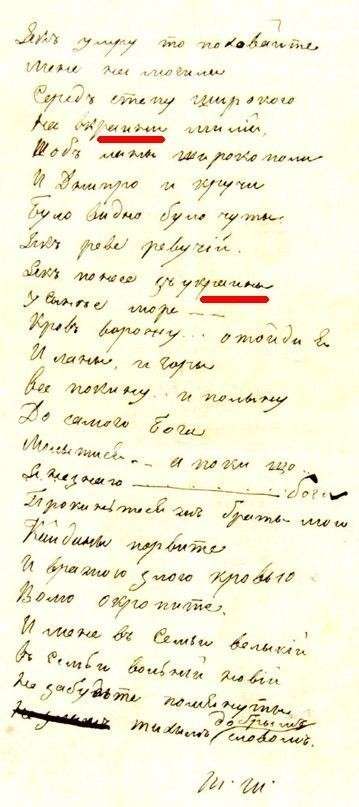 Якъ умру то поховайте
Мене на могили
Середъ степу широкого
На вкраини милій,
Щобъ ланы широкополи
И Днипро и кручи
Було видно було чуты
Якъ реве ревучій.
Якъ понесе зъ украины
У синьее море ——
Кровъ ворожу... отойди я
И ланы, и горы
Все покину.. и полыну
До самого Бога
Молытыся.. а поки що..
Я незнаю бога
браты мои
Кайданы порвите
И вражою злого кровью
Волю окропите.
И мене въ семьи велыкій
Въ семьи вольній новій
Не забудьте помянуты
тихымъ добрымъ словомъ.
Т. Ш.